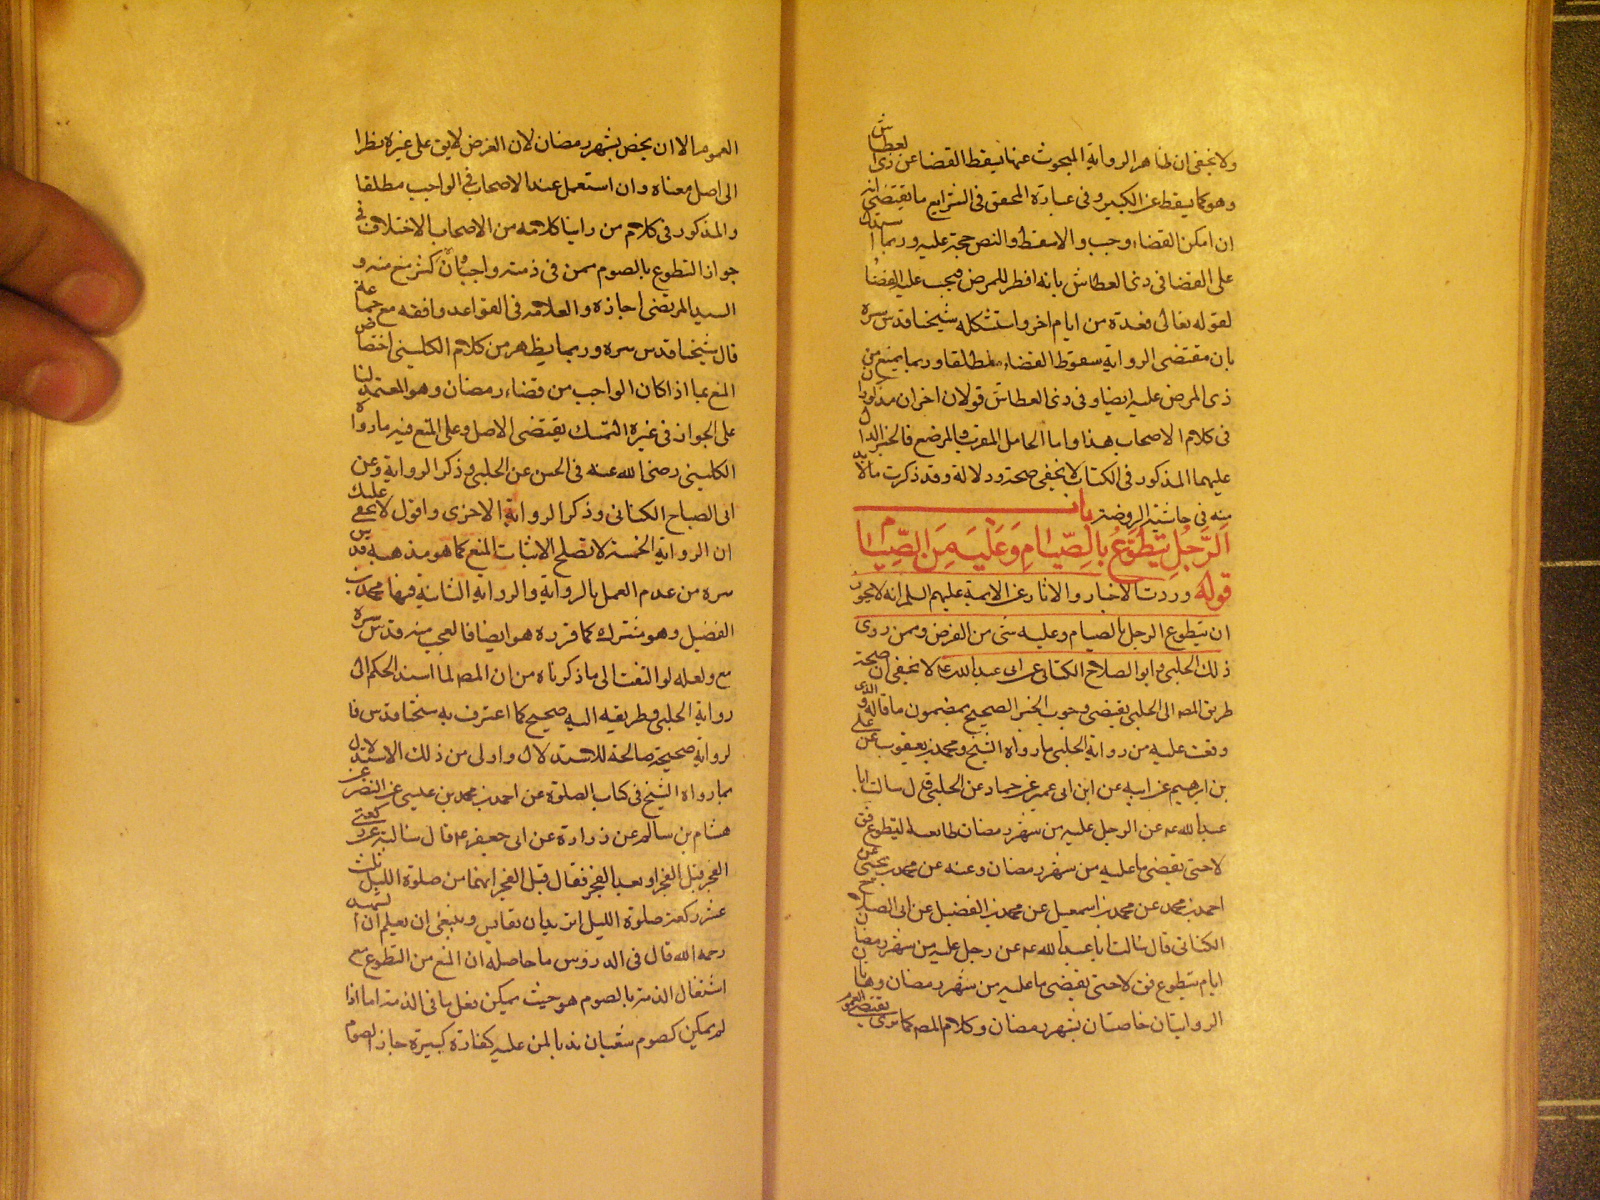 ولا يخفى ان ظاهر الرواية المبحوث عنها يسقط القضا عن ذى العطاش
وهو كما يسقط عن الكبير وفى عبارة المحقق فى الشرايع ما يقتضى انه
ان امكن القضاء وجب والا سقط والنص حجة عليه وربما استدل
على القضا فى ذى العطاش بانه افطر للمرض فيجب عليه القضا
لقوله تعالى فعدة من ايام اخر واستشكله شيخنا قدس سره
بان مقتضى الرواية سقوط القضاء مطلقا وربما يمنع من
ذى المرض عليه ايضا وفى ذى العطاش قولان اخران مذكوران
فى كلام الاصحاب هذا واما الحامل المقرب والمرضع فالخبر الدال
عليهما المذكور فى الكتاب لا يخفى صحته ودلالة وقد ذكرت مالا بد
منه فى حاشية الروضة باب
الرَّجُلِ يَتَطَوَّعُ بِالصِّيَامِ وَعَلَيْهِ مِنَ الصِّيَامِ
قوله وردت الاخبار والاثار عن الايمة عليهم السلم انه لا يجوز
ان يتطوع الرجل بالصيام وعليه شئ من الفرض وممن روى
ذلك الحلبى وابو الصلاح الكنانى عن ابى عبد الله ع لا يخفى ان صحة
طريق المص الى الحلبى يقتضى وجوب الخبر الصحيح بمضمون ما قاله والذى
وقفت عليه من رواية الحلبى ما رواه الشيخ ومحمد بن يعقوب عن على
بن ابرهيم عن ابيه عن ابن ابى عمير عن حماد عن الحلبى قال سالت ابا
عبد الله ع عن الرجل عليه من شهر رمضان طايعه ليتطوع فق
لا حتى يقضى ما عليه من شهر رمضان وعنه عن محمد بن يحيى عن
احمد بن محمد عن محمد بن اسمعيل عن محمد بن الفضيل عن ابى الصباح
الكنانى قال سالت ابا عبد الله ع عن رجل عليه من شهر رمضان
ايام يتطوع فق لا حتى يقضى ما عليه من شهر رمضان وهاتان
الروايتان خاصتان بشهر رمضان وكلام المص كما ترى يقتضى العموم
العموم الا ان يخص بشهر رمضان لان الفرض لا يق على غيره نظرا
الى اصل معناه وان استعمل عند الاصحاب فى الواجب مطلقا
والمذكور فى كلام من راينا كلامه من الاصحاب الاختلاف فى
جواز التطوع بالصوم ممن فى ذمته واجب وان كثر منع منه و
السيد المرتضى اجازه والعلامه فى القواعد وافقه مع جماعة
قال شيخنا قدس سره وربما يظهر من كلام الكلينى اختصاص
المنع بما اذا كان الواجب من قضاء رمضان وهو المعتمد لنا
على الجواز فى غيره التمسك بمقتضى الاصل وعلى المنع فيه ما رواه
الكلينى رضى الله عنه فى الحسن عن الحلبى وذكر الرواية وعن
ابى الصباح الكنانى وذكر الرواية الاخرى واقول لا يخفى عليك
ان الرواية الحسنة لا تصلح لاثبات المنع كما هو مذهبه قدس
سره من عدم العمل بالرواية والرواية الثانية فيها محمد بن
الفضيل وهو مشترك كما قرره هو ايضا فالعجب منه قدس سره
مع ولعله لو التفت الى ما ذكرناه من ان المص لما اسند الحكم الى
رواية الحلبى وطريقه اليه صحيح كما اعترف به شيخنا قدس فا
لرواية صحيحة صالحة للاستدلال واولى من ذلك الاستدلال
بما رواه الشيخ فى كتاب الصلوة عن احمد بن محمد بن عليى عن النضر عن
هشام بن سالم عن زرارة عن ابى جعفر ع قال سالته عن ركعتى
الفجر قبل الفجر او بعد الفجر فقال قبل الفجر انهما من صلوة الليل ثلث
عشر ركعة صلوة الليل اتريد ان تقايس وينبغى ان يعلم ان الشهيد
رحمه الله قال فى الدروس ما حاصله ان المنع من التطوع مع
اشتغال الذمة بالصوم هو حيث يمكن فعل ما فى الذمة اما اذا
لم يمكن كصوم شعبان ندبا لمن عليه كفارة كبيرة جاز الصوم